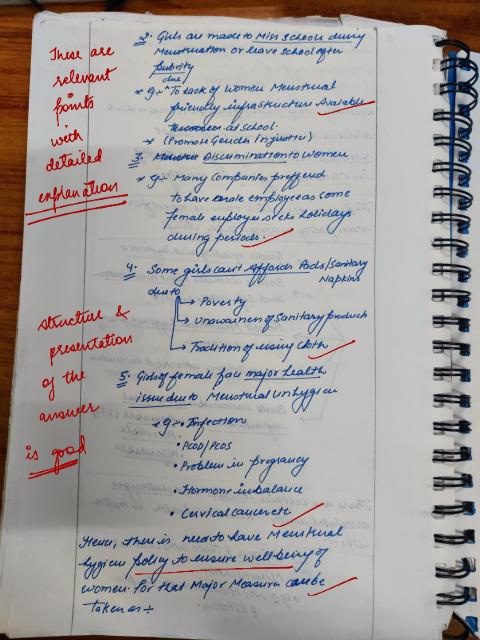 These are
relevant
points
with
detailed
explanation
structure &
presentation
of the
answer
is good
2. Girls are made to Miss Schools during
Menstruation or leave school after
pubrity
due
* eg:- To Lack of women Menstrual
friendly infrastructure Available
at school.
* (Promote Gender Injustice)
3. Discrimination to women
* eg:- Many Companies preffend
to have male employee as some
female employee seeks holidays
during periods.
4. Some girls can't Affords Pads/Sanitary
Napkins
due to
→ Poverty
→ unawarness of Sanitary product
→ Tradition of using cloth
5. Girls of female face major health
issue due to Menstrual unhygien
* eg:- • Infection
• PCOD/PCOS
• Problem in pregnancy
• Hormone inbalance
• Cervical cancer etc
Hence, there is need to have Menstrual
hygiene policy to ensure well-being of
women. for that Major Measure can be
taken as :-